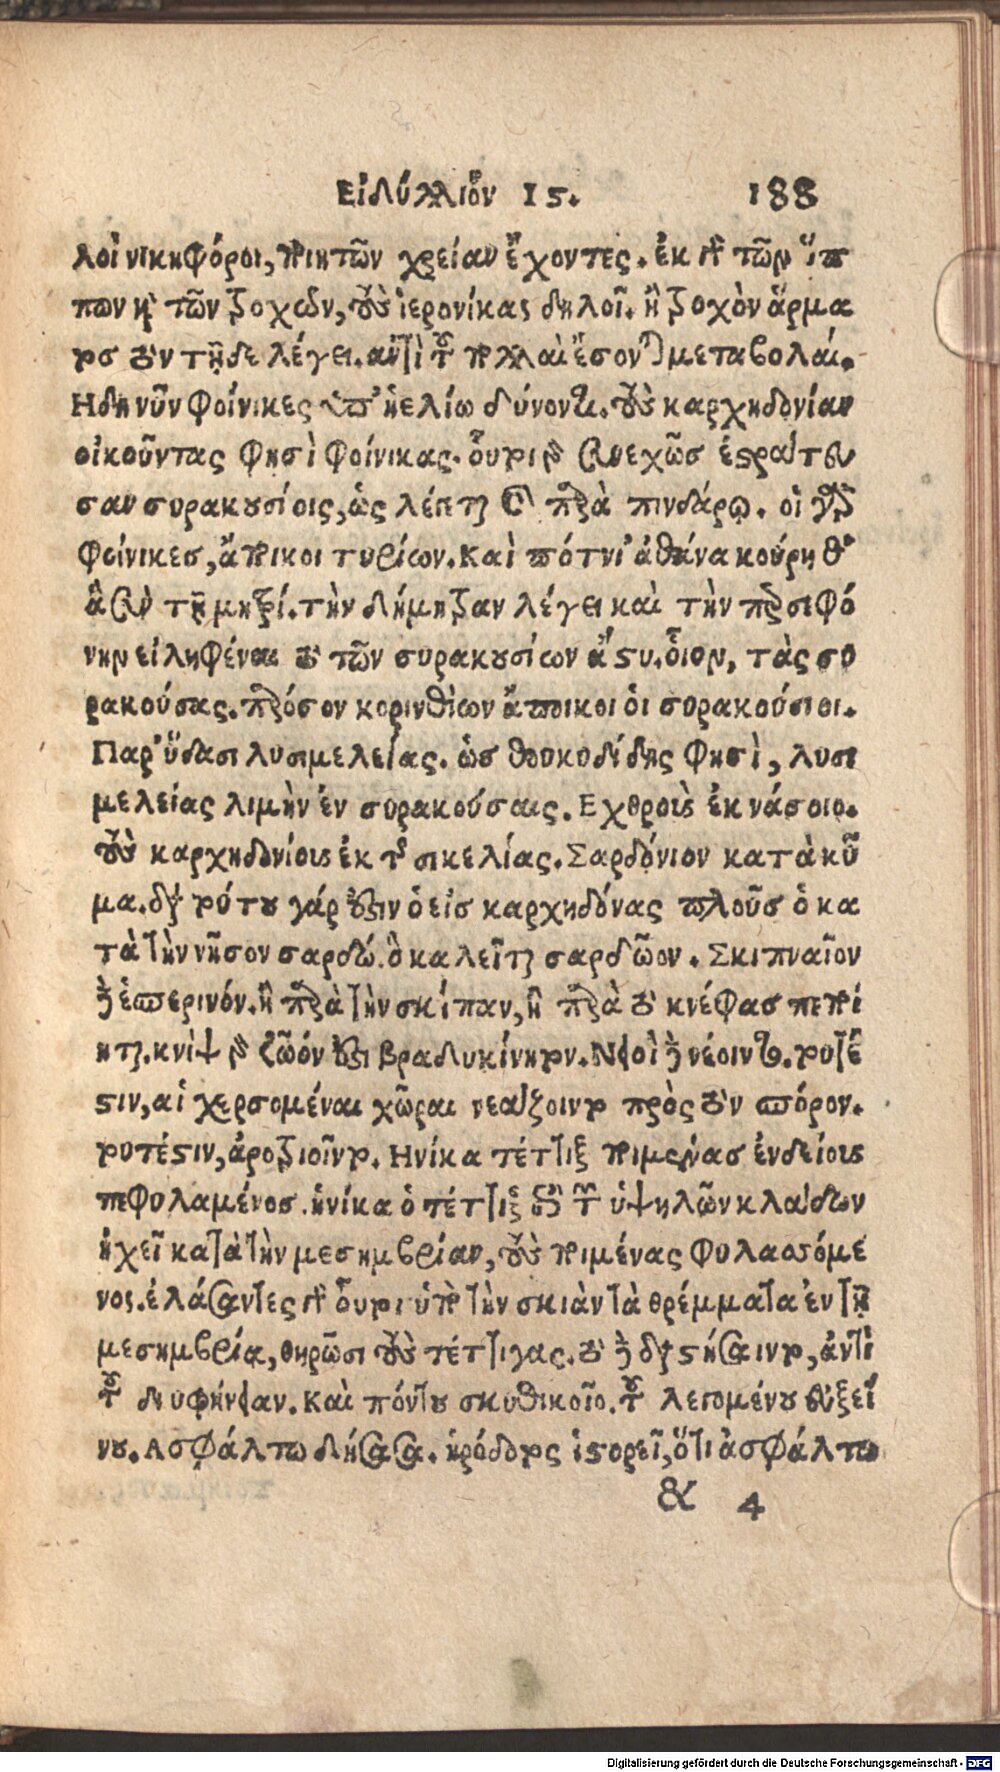 Εἰδύλλιον 15. 188
λοὶ νικηφόροι, ποιητῶν χρείαν ἔχοντες. ἐκ δὲ τῶν ἵπ
πων καὶ τῶν τροχῶν, τοὺς ἱερονίκας δηλοῖ. ἢ τροχὸν ἅρμα
τος τὸν τῇδε λέγει. ἀντὶ τοῦ πολλαὶ ἔσονται μεταβολαί.
Ηδη νῦν φοίνικες ὑπ' ἠελίω δύνοντι. τοὺς καρχηδονίαν
οἰκοῦντας φησὶ φοίνικας. οὗτοι γὰρ συνεχῶς ἐστρατευ
σαν συρακουσίοις, ὡς λέγεται καὶ παρὰ πινδάρῳ. οἱ γὰρ
φοίνικες, ἄποικοι τυρίων. Καὶ πότνι' ἀθάνα κούρη θ'
ἃ σὺν τῇ μητρί. τὴν δήμητραν λέγει καὶ τὴν περσεφό
νην εἰληφέναι τὸ τῶν συρακουσίων ἄστυ. οἷον, τὰς συ
ρακούσας. παρόσον κορινθίων ἄποικοι οἱ συρακούσιοι.
Παρ' ὕδασι λυσιμελείας. ὡς θουκυδίδης φησὶ, λυσι
μελείας λιμὴν ἐν συρακούσαις. Εχθροὺς ἐκ νάσοιο.
τοὺς καρχηδονίους ἐκ τῆς σικελίας. Σαρδόνιον κατὰ κῦ
μα. διὰ τούτου γάρ ἐστιν ὁ εἰς καρχηδόνας πλοῦς ὁ κα
τὰ τὴν νῆσον σαρδώ. ὃ καλεῖται σαρδῶον. Σκιπναῖον
ἑσπερινόν. ἢ παρὰ τὴν σκίπαν, ἢ παρὰ τὸ κνέφας πεποί
ηται. κνὶψ γὰρ ζῶόν ἐστι βραδυκίνητον.
σιν, αἱ χερσομέναι χῶραι νεάζοιντο πρὸς τὸν σπόρον.
ἀροτριοῖντο. Ηνίκα τέττιξ ποιμένας ἐνδείους
πεφυλαμένος. ἡνίκα ὁ τέττιξ ἐπὶ τῶν ὑψηλῶν κλάδων
ἠχεῖ κατὰ τὴν μεσημβρίαν, τοὺς ποιμένας φυλασσόμε
νος. ἐλάσαντες δὲ οὗτοι ὑπὸ τὴν σκιὰν τὰ θρέμματα ἐν τῇ
μεσημβρία, θηρῶσι τοὺς τέττιγας. ἀντὶ
τοῦ Καὶ πόντου σκυθικοῖο. τοῦ λεγομένου εὐξεί
νου. Ασφάλτω δήσασα. ἡρόδοτος ἱστορεῖ, ὅτι ἀσφάλτω
& 4
Digitalisierung gefördert durch die Deutsche Forschungsgemeinschaft - DFG